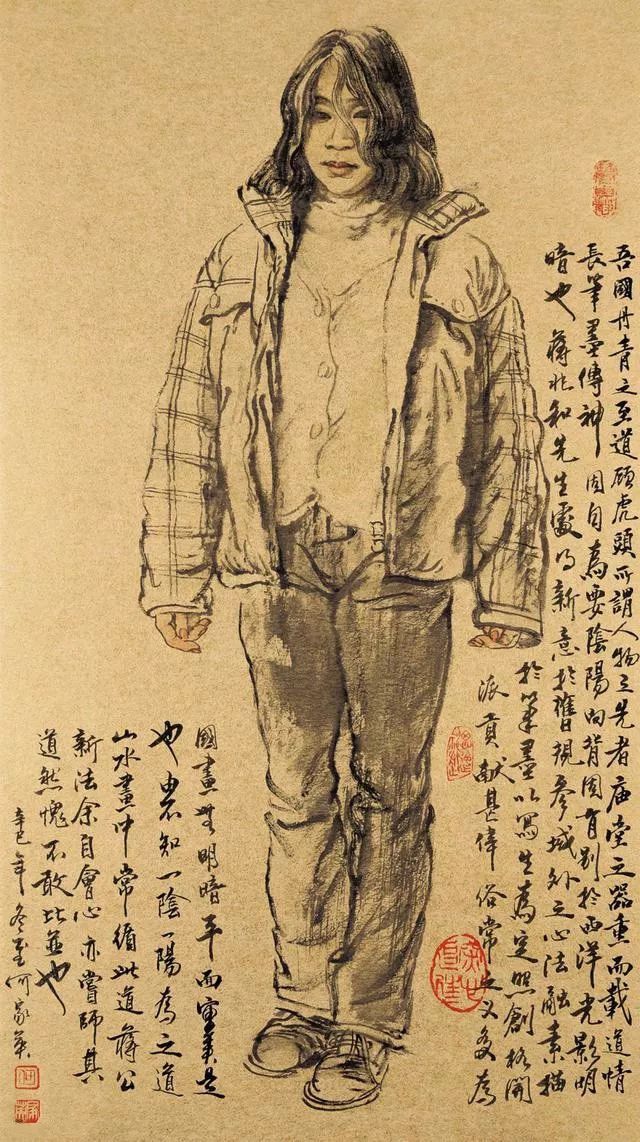 吾國丹青之至道顧虎頭所謂人物之先者廟堂之器重而載道情
長筆墨傳神因自為要陰陽向背固有别於西洋光影明
暗也蔣兆和先生新意於舊規參域外之心法融素描
於筆墨以寫生為定照創格開
派貢献甚偉俗常之又多為
國畫無明暗平而實美是
也不知一陰一陽為之道
山水畫中常循此道蔣公
新法余自會心亦嘗師其
道然愧不敢比並也
辛巳年冬至何家英